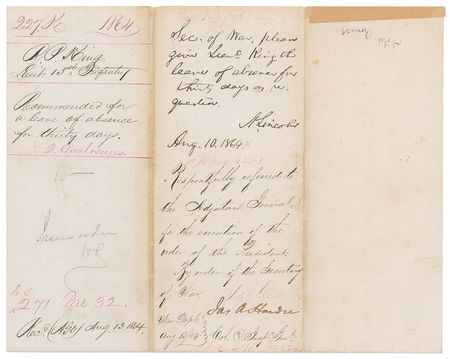 227. K 1864.
R P King.
Lieut 15th Infantry
Recommended for
a leave of absence
for thirty days.
2. Enclosures.
10 —
Issue order
271 Par 32.
Recd (AGO) Aug. 13. 1864.
Sec. of War, please
give Lieut. King the
leave of absence for
thirty days as re-
quested.
A. Lincoln
Aug. 10. 1864
Respectfully referred to
the Adjutant General
for the execution of the
order of the President.
By order of the Secretary
of War.
Jas A Hardie
War Dept.
Aug 13/64 Col. & Insp. Genl.